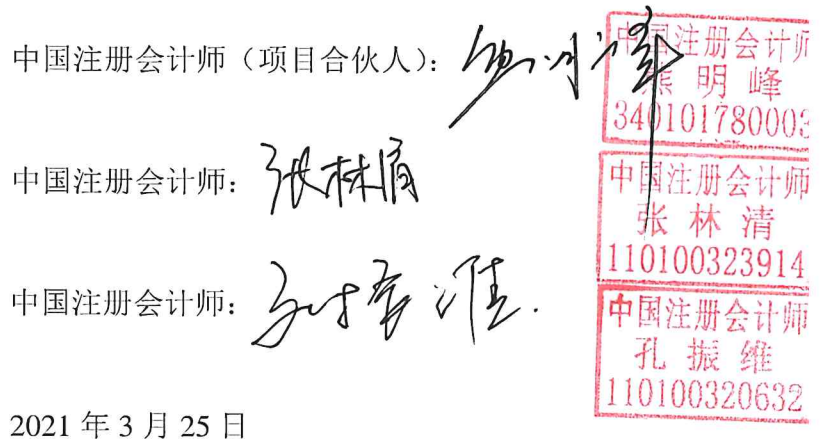 中国注册会计师（项目合伙人）：
中国注册会计师
熊明峰
340101780003
中国注册会计师：张林清
中国注册会计师
张林清
110100323914
中国注册会计师：
中国注册会计师
孔振维
110100320632
2021 年 3 月 25 日